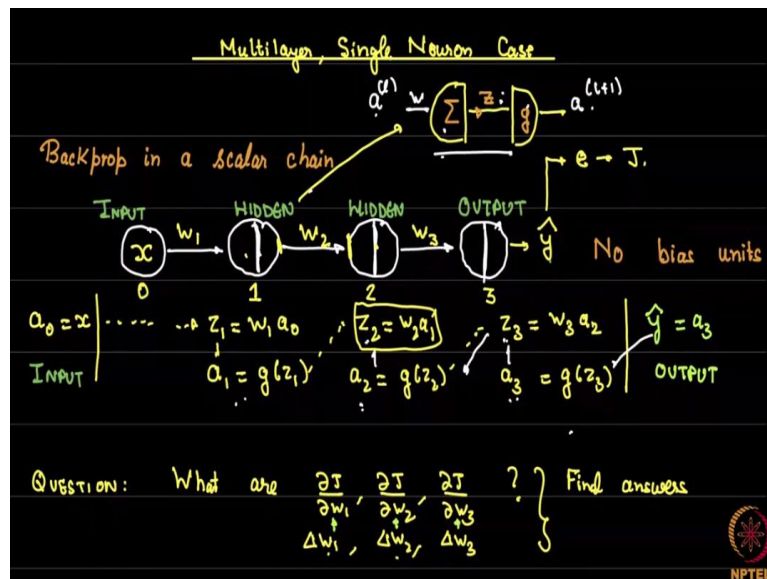 Multilayer, Single Neuron Case
a^(l) w Σ z g a^(l+1)
Backprop in a scalar chain
e → J.
INPUT HIDDEN HIDDEN OUTPUT
x w₁ w₂ w₃ ŷ No bias units
0 1 2 3
a₀ = x z₁ = w₁a₀ z₂ = w₂a₁ z₃ = w₃a₂ ŷ = a₃
INPUT a₁ = g(z₁) a₂ = g(z₂) a₃ = g(z₃) OUTPUT
QUESTION: What are ∂J/∂w₁, ∂J/∂w₂, ∂J/∂w₃ ? } Find answers
Δw₁, Δw₂, Δw₃
NPTEL